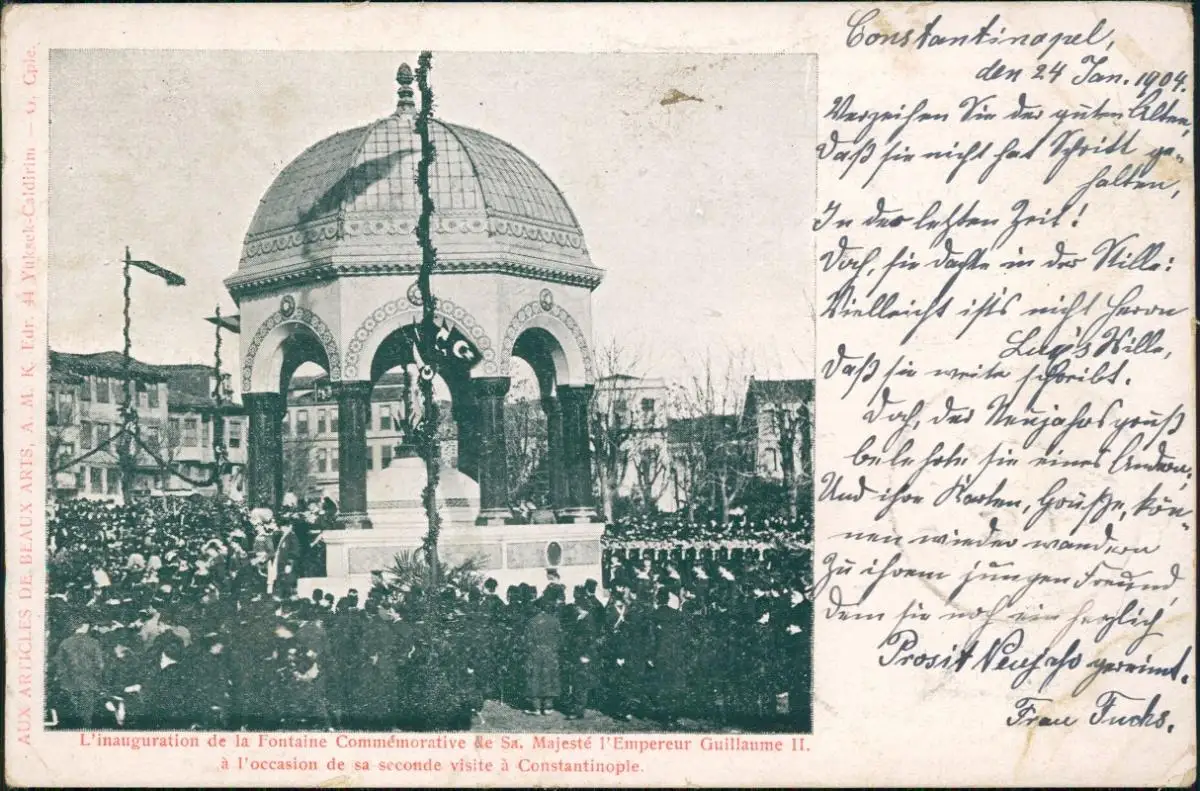 AUX ARTICLES DE BEAUX ARTS, A. M. K. Edr. 44 Yüksek-Caldirim — G. Cple.
Constantinopel,
den 24 Jan. 1904.
Verzeihen Sie der guten Alten,
Daß sie nicht hat Schritt ge-
halten,
In der letzten Zeit!
Doch, sie dachte in der Stille:
Vielleicht ist's nicht Herrn
Wille,
Daß sie weite schreibt.
Doch, der Neujahrsgruß
belehrte sie eines Andern,
Und ihre Karten, Grüße, kön-
nen wieder wandern
Zu ihrem jungen Freund,
Dem sie noch ein herzlich
Prosit Neujahr gereimt.
Frau Fuchs.
L'inauguration de la Fontaine Commémorative de Sa. Majesté l'Empereur Guillaume II.
à l'occasion de sa seconde visite à Constantinople.